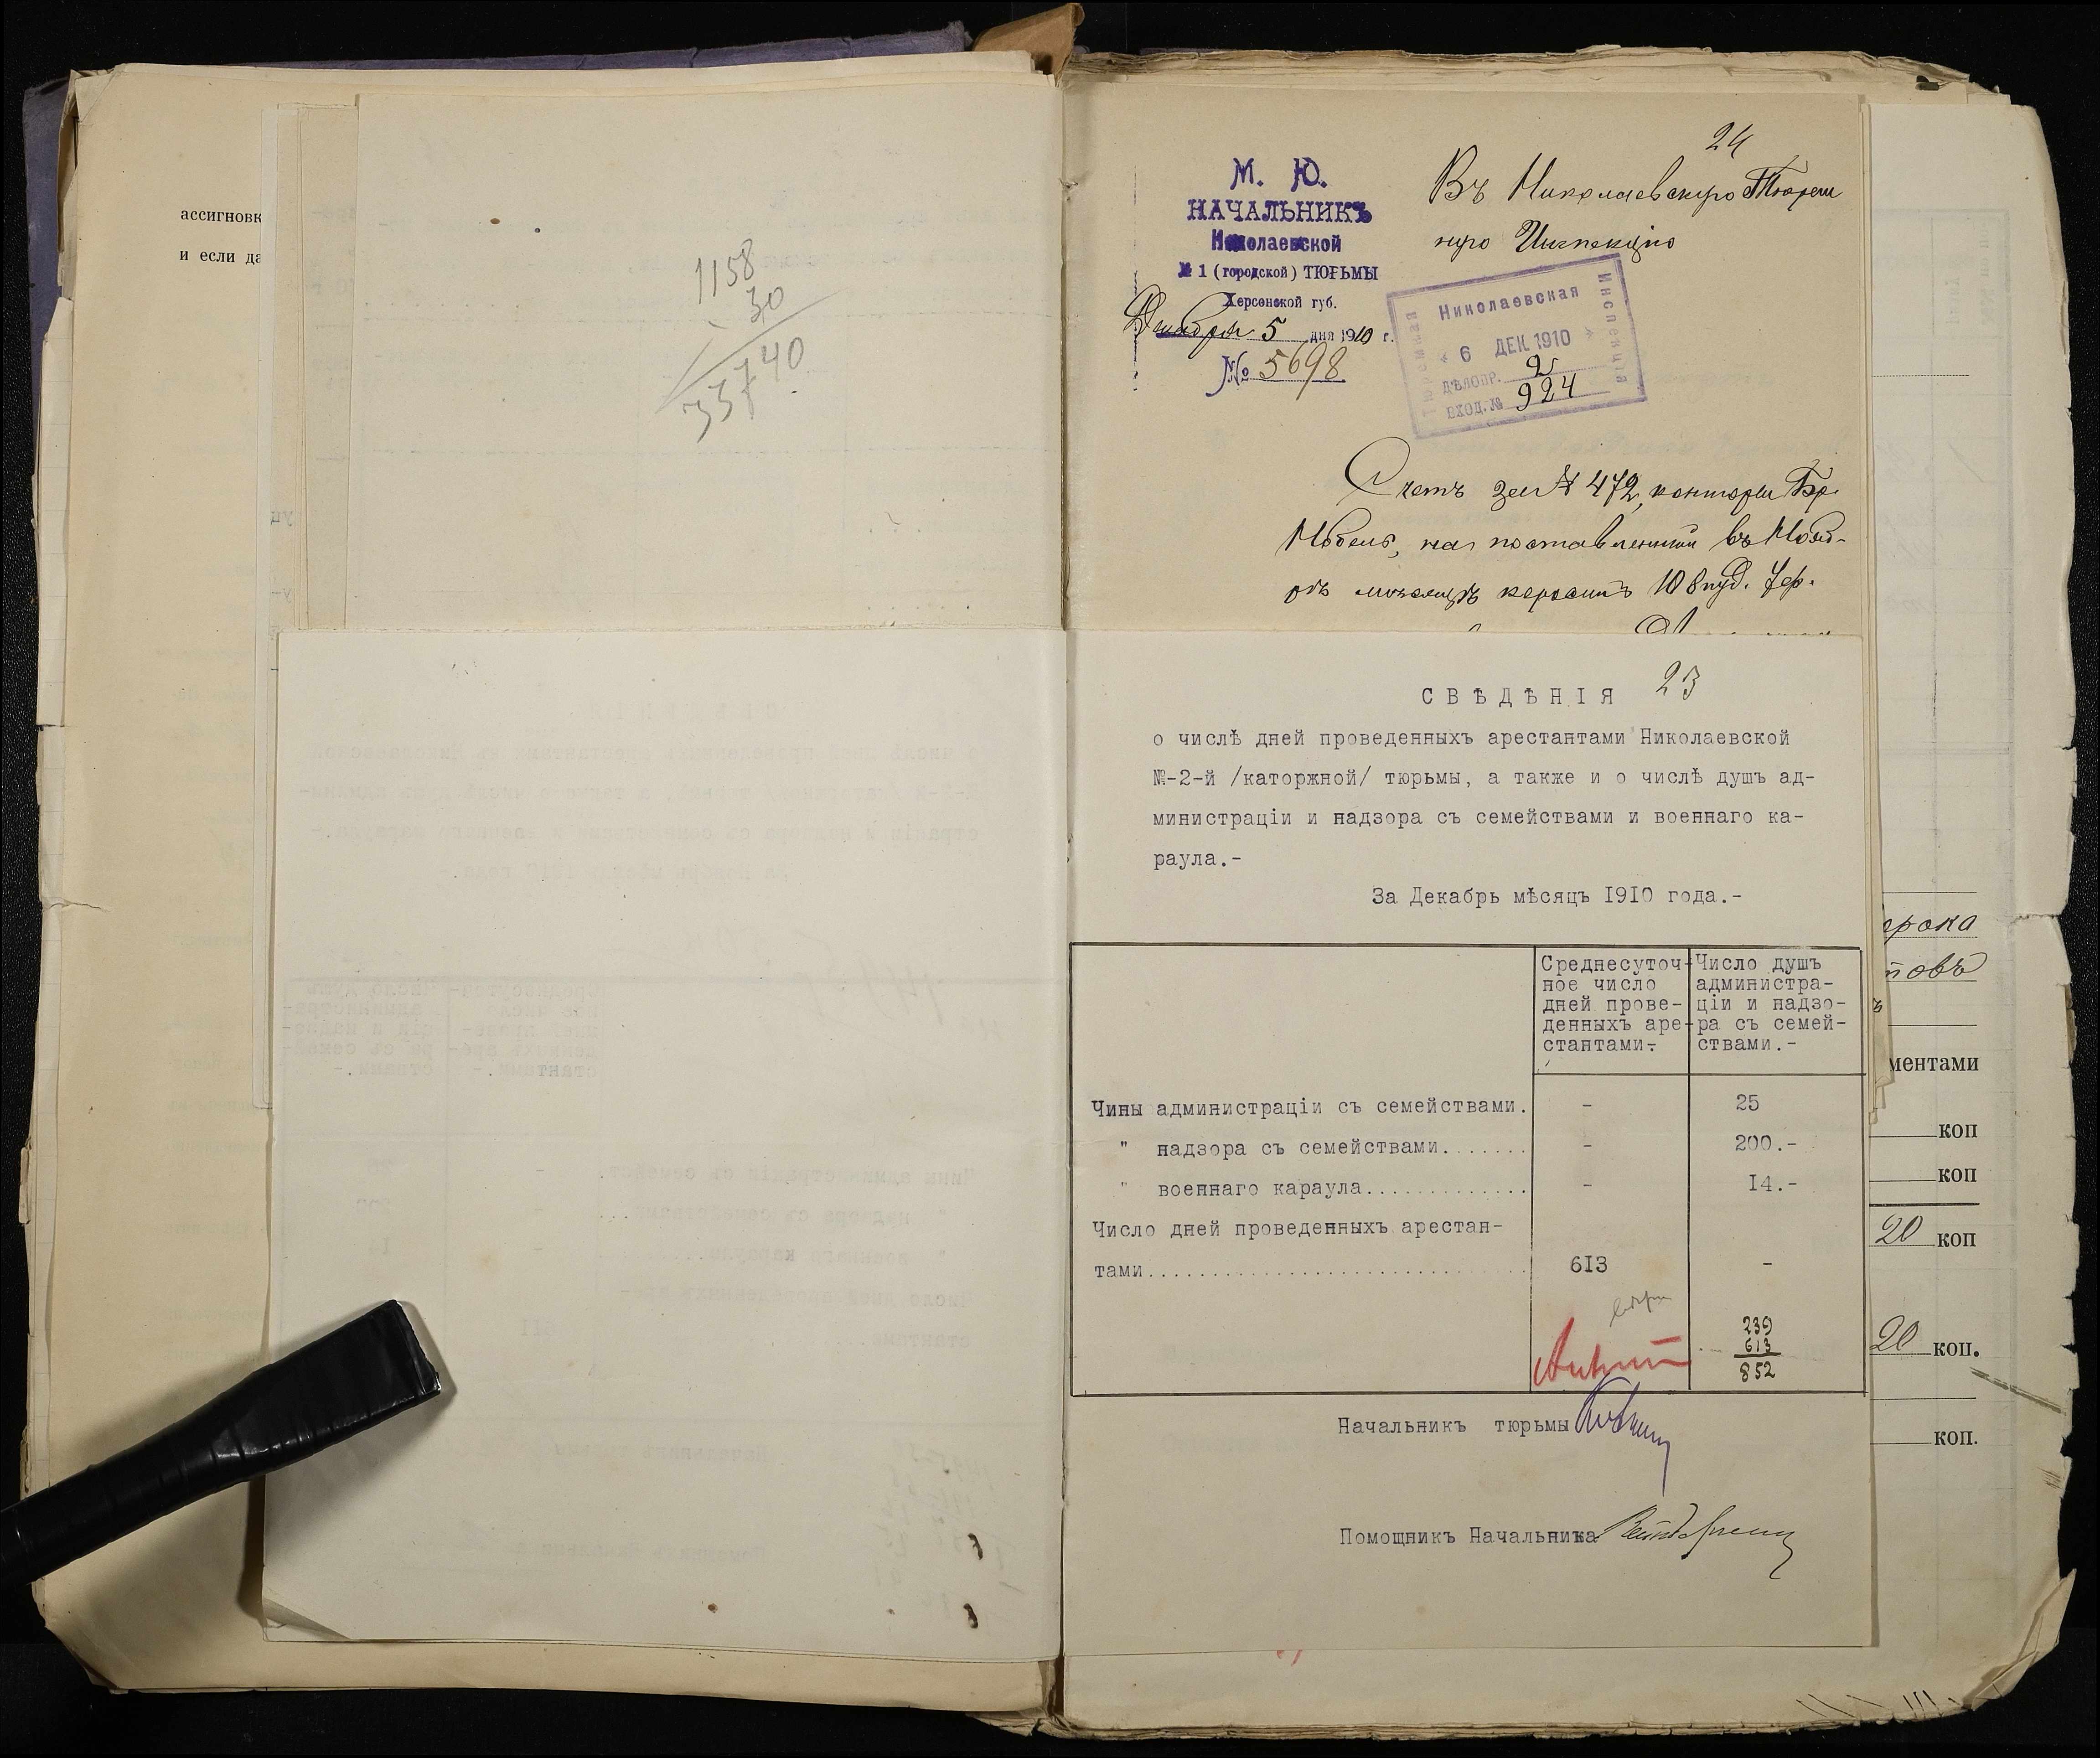 ассигновк
и если да
1158
30
33740
24
М. Ю.
НАЧАЛЬНИКЪ
Николаевской
№ 1 (городской) ТЮРЬМЫ
Херсонской губ.
Декабря 5 дня 1910 г.
№ 5698
Въ Николаевскую Тюрем
ную Инспекцію
Николаевская
Тюремная
Инспекція
6 ДЕК. 1910
ДѢЛОПР. 2
ВХОД. № 924
Счетъ за № 472, конторы Бр.
Нобель, на поставленный въ Нояб-
рѣ мѣсяцѣ керосинъ 108 пуд. 7 ф.
23
СВѢДѢНІЯ
о числѣ дней проведенныхъ арестантами Николаевской
№-2-й /каторжной/ тюрьмы, а также и о числѣ душъ ад-
министраціи и надзора съ семействами и военнаго ка-
раула.-
За Декабрь мѣсяцъ 1910 года.-
Среднесуточ-
ное число
дней прове-
денныхъ аре-
стантами.-
Число душъ
администра-
ціи и надзо-
ра съ семей-
ствами.-
Чины администраціи съ семействами. - 25
" надзора съ семействами....... - 200.-
" военнаго караула............. - 14.-
Число дней проведенныхъ арестан-
тами.............................. 613 -
239
613
852
Начальникъ тюрьмы
Помощникъ Начальника
ментами
коп
коп
20 коп
20 коп.
коп.